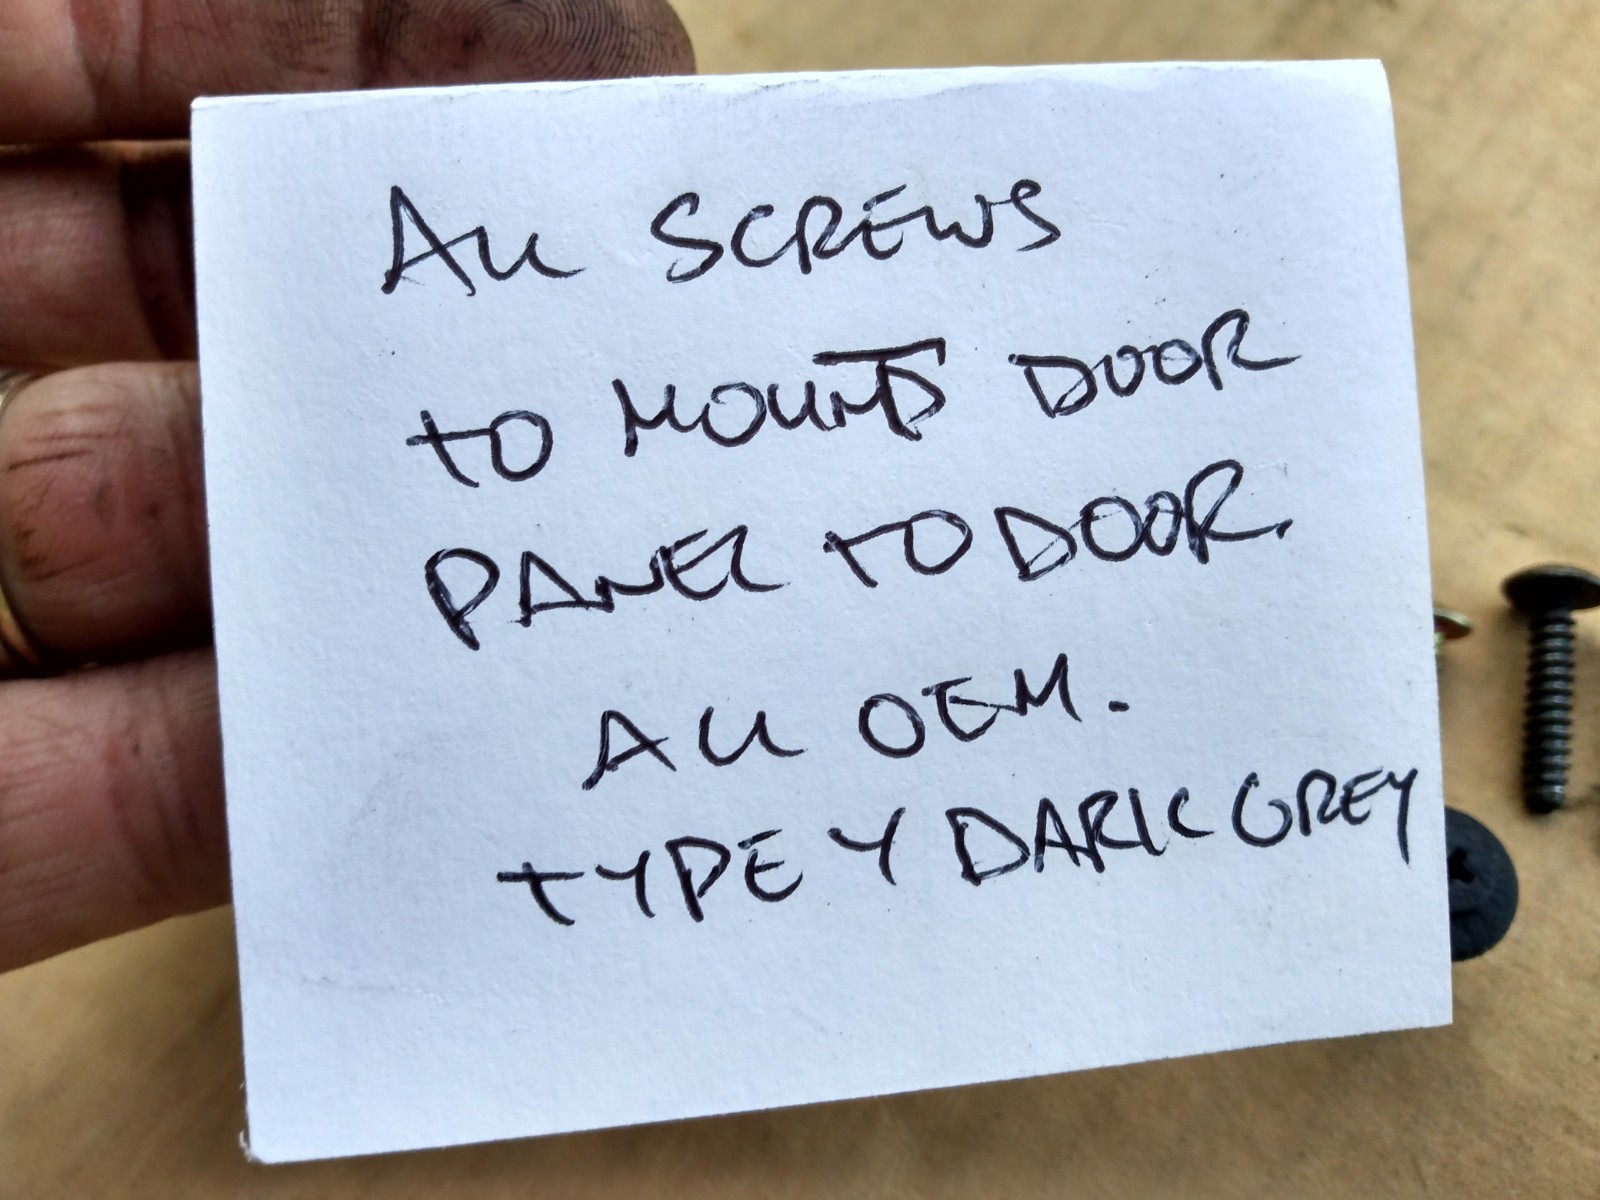 All SCREWS
TO MOUNT DOOR
PANEL TO DOOR.
All OEM.
TYPE Y DARK GREY